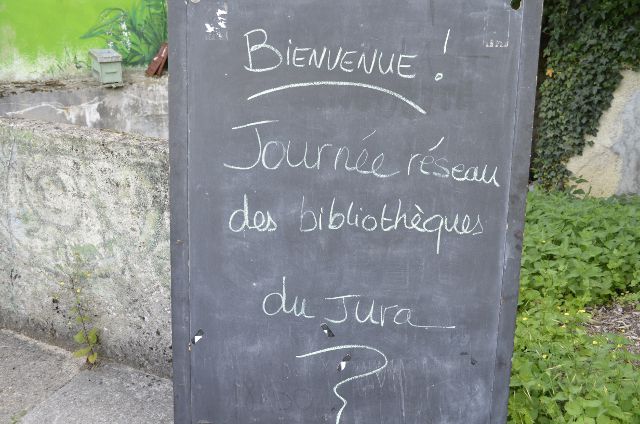 Bienvenue !
Journée réseau
des bibliothèques
du Jura